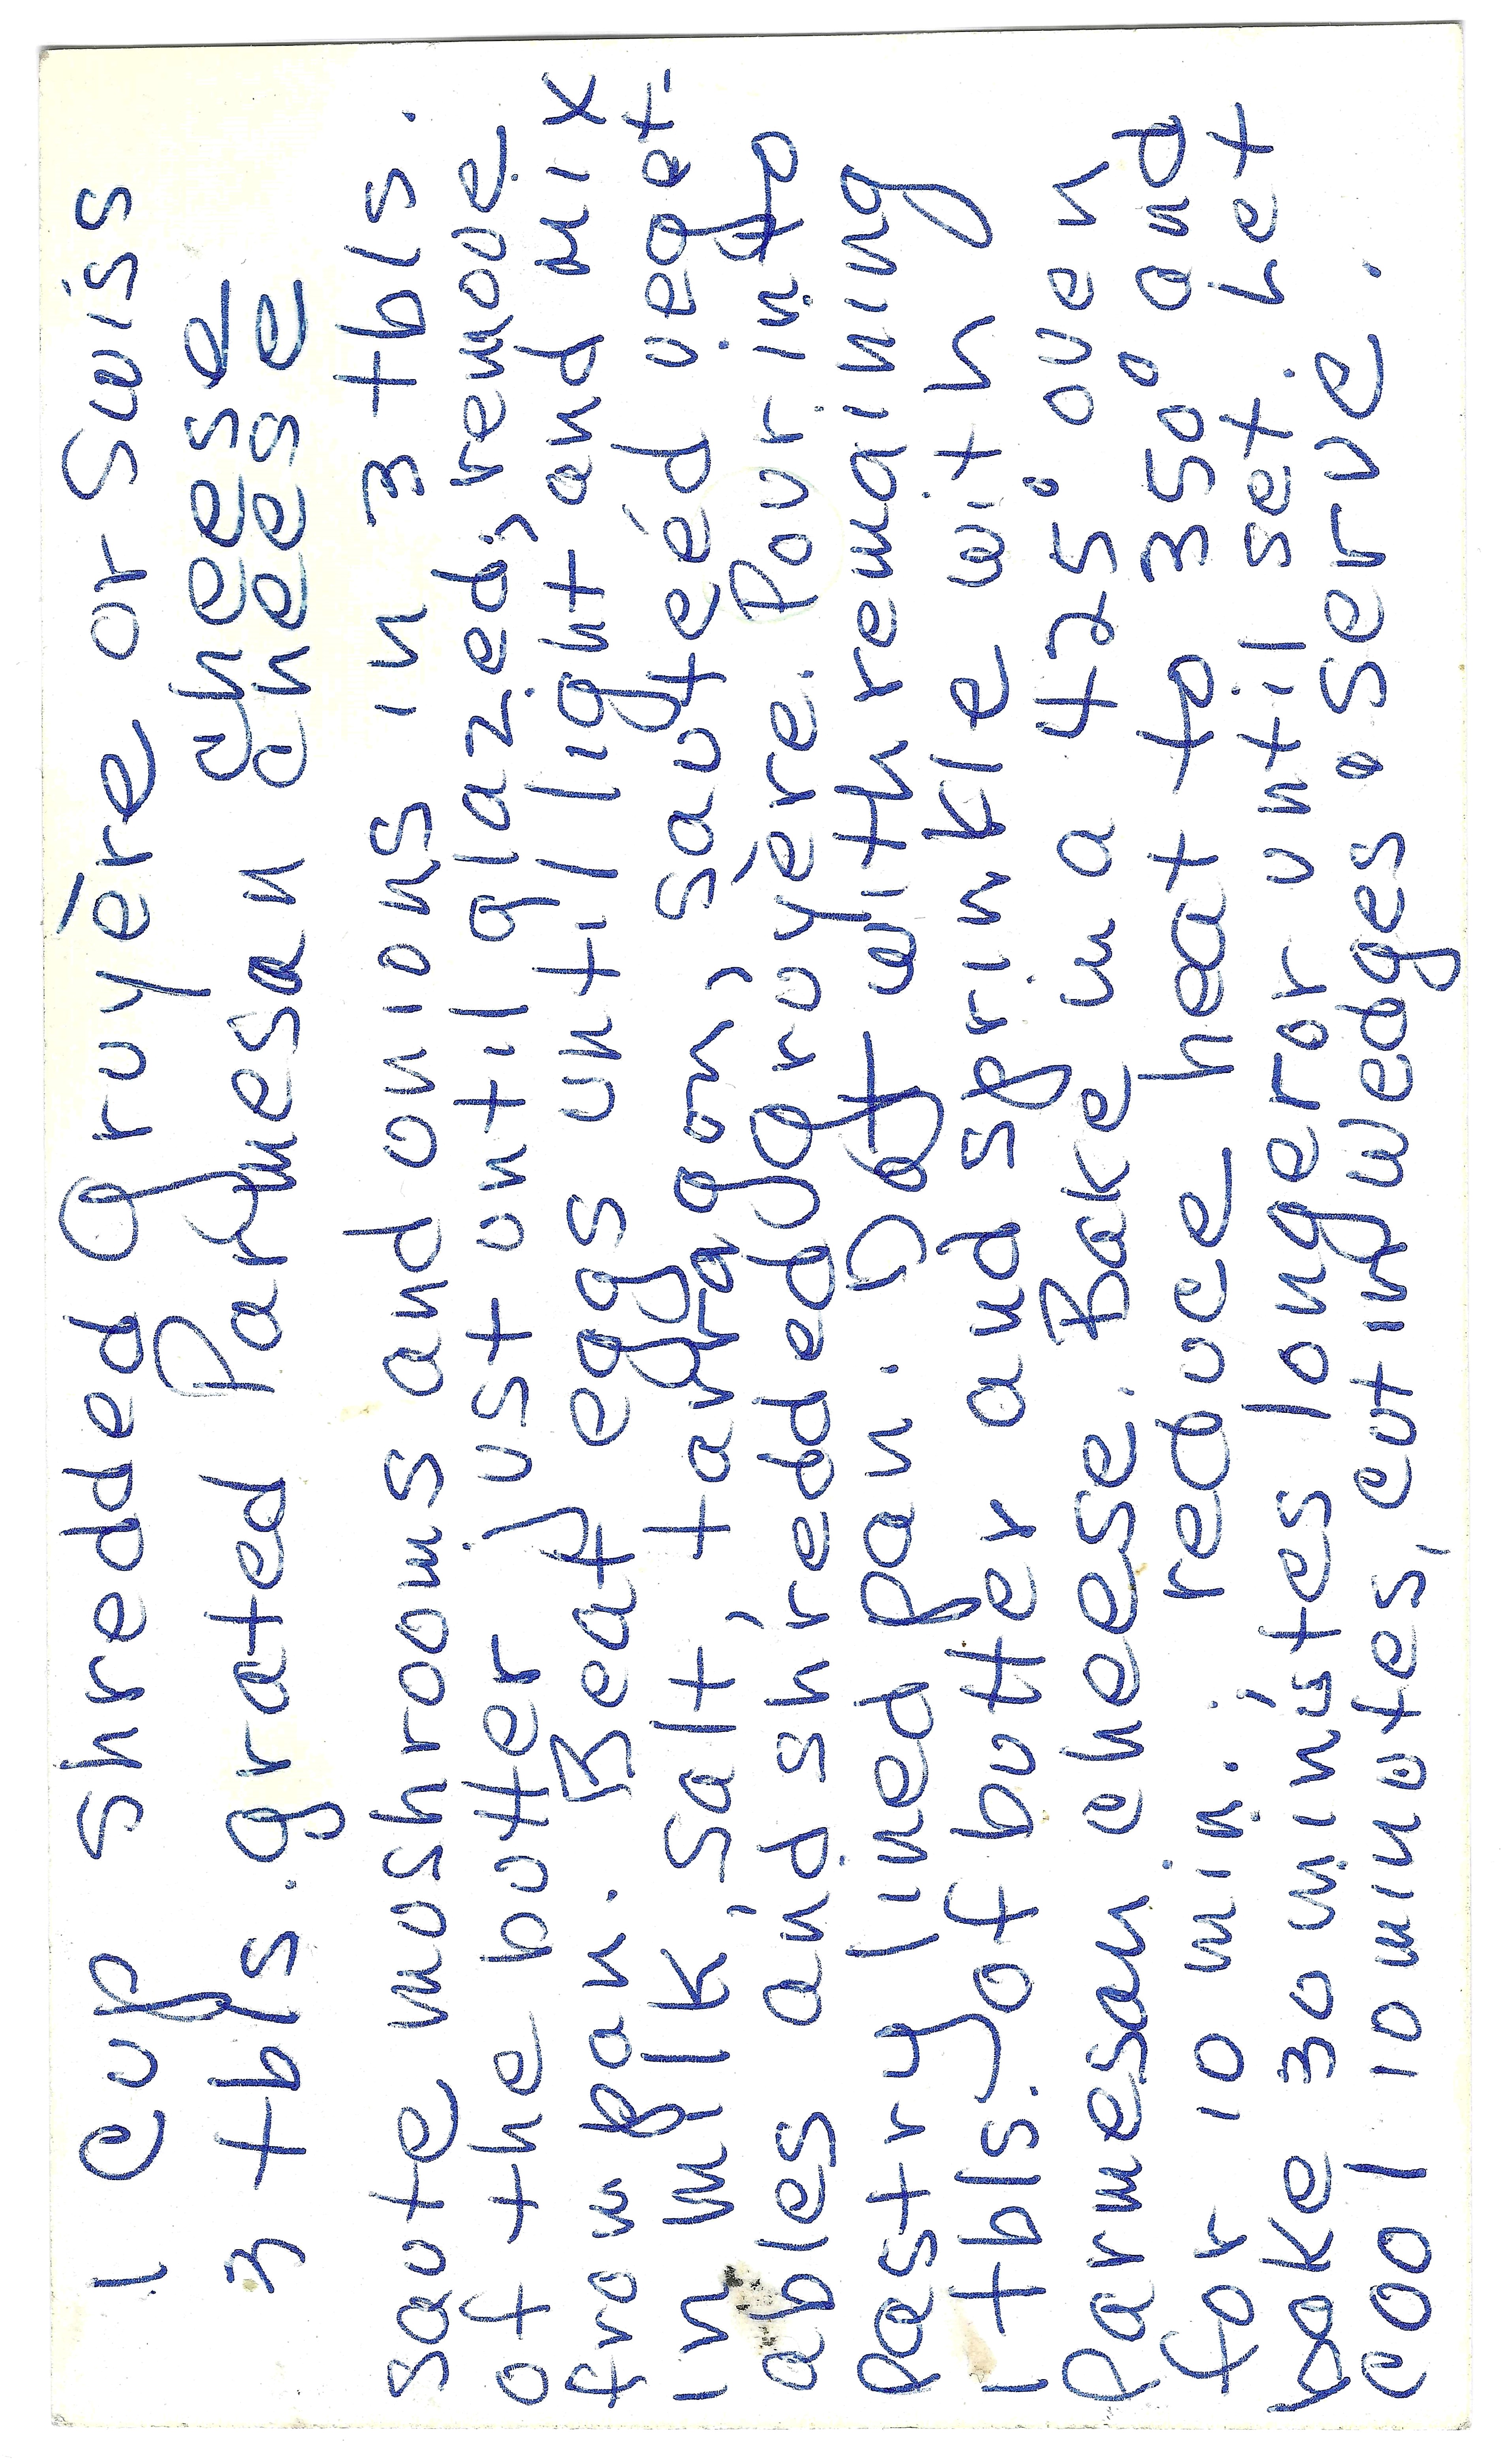 1 cup shredded Gruyère or Swiss
cheese
3 tbls. grated Parmesan cheese
saute mushrooms and onions in 3 tbls.
of the butter just until glazed; remove
from pan. Beat eggs until light and mix
in milk, salt, tarragon, sautéed veget-
ables and shredded Gruyère. Pour into
pastry lined pan. Dot with remaining
1 tbls. of butter and sprinkle with
Parmesan cheese. Bake in a 425° oven
for 10 min.; reduce heat to 350° and
bake 30 minutes longer or until set. Let
cool 10 minutes, cut in wedges & serve.